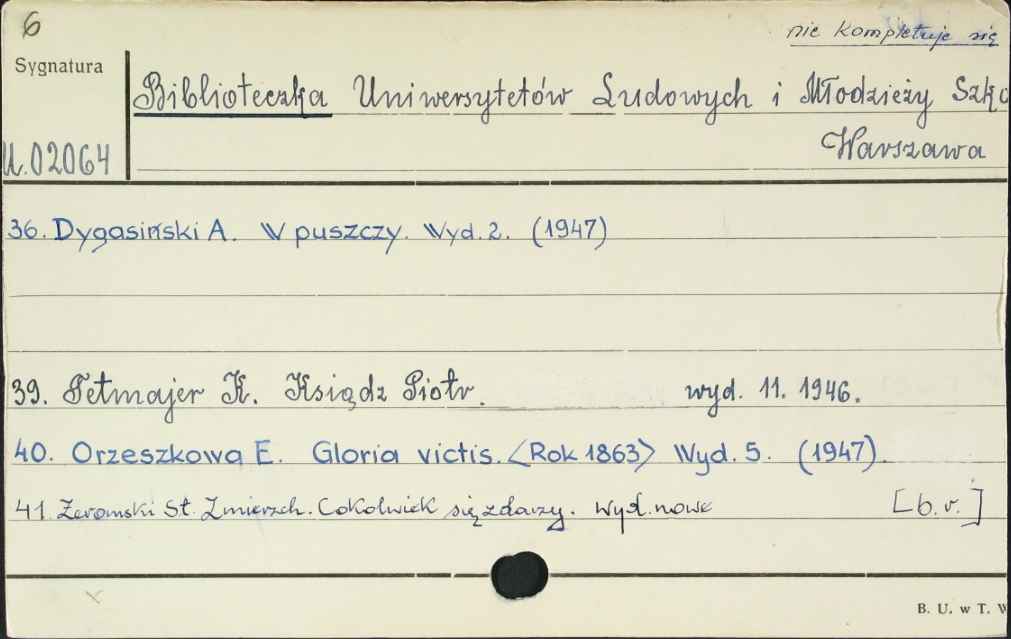 6
nie kompletuje się
Sygnatura
Biblioteczka Uniwersytetów Ludowych i Młodzieży Szko
Warszawa
U.02064
36. Dygasiński A. W puszczy. Wyd. 2. (1947)
39. Tetmajer K. Ksiądz Piotr. wyd. 11. 1946.
40. Orzeszkowa E. Gloria victis. <Rok 1863> Wyd. 5. (1947).
41 Żeromski St. Zmierzch. Cokolwiek się zdarzy. Wyd. nowe [b. r.]
B. U. w T. W